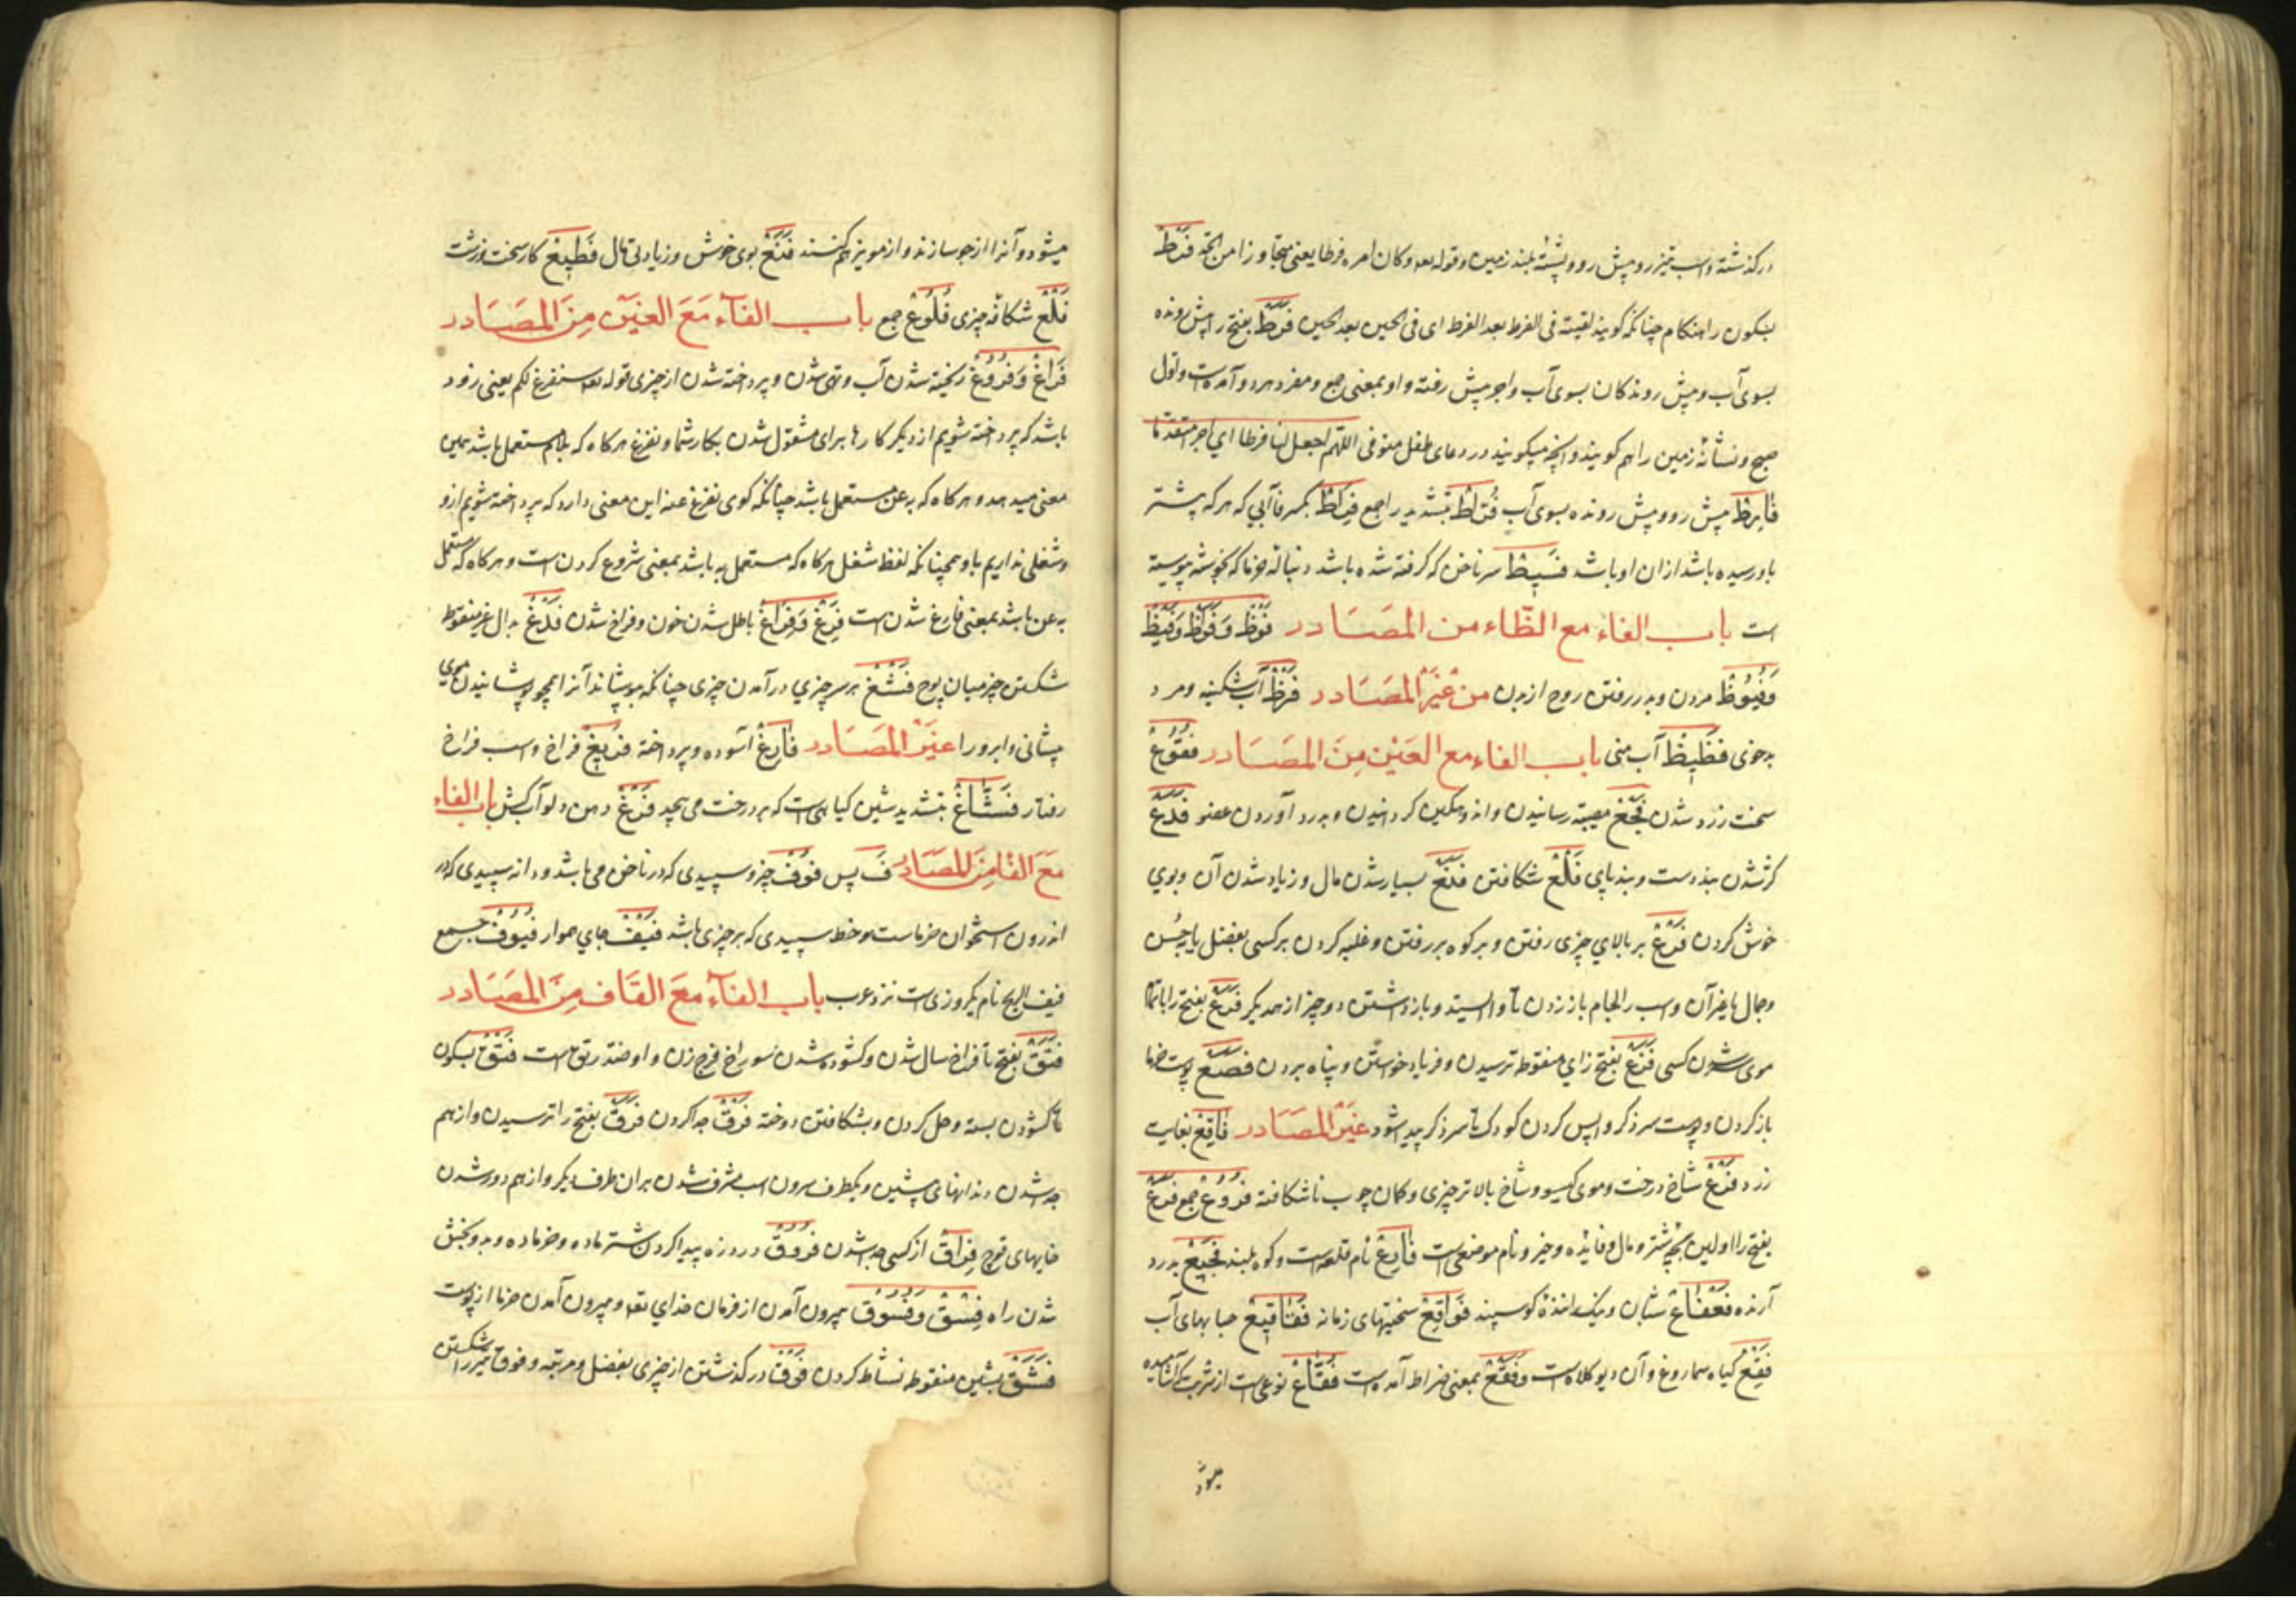 درکذشته واسب تیز رو و پیش رو و پشتهٔ بلند زمین وقوله تعه وکان امره فرطا یعنی متجاوزا من الحد فَرْطْ
بسکون را هنکام چنانکه کویند لقیته فی الفرط بعد الفرط ای فی الحین بعد الحین فَرَطْ بفتح را پیش رونده
بسوی آب و پیش روندکان بسوی آب واجر پیش رفته واو بمعنی جمع و مفرد هر دو آمده است واول
صبح ونشانهٔ زمین را هم کویند وانچه میکویند در دعای طفل متوفی اللهم اجعل لنا فرطا ای اجرا متقدما
فَارِطْ پیش رو و پیش رونده بسوی آب فُرَّاطْ بتشدید را جمع فِرَاطْ بکسر فا آبی که هر که پیشتر
باو رسیده باشد ازان او باشد فَسِیطْ سر ناخن که کرفته شده باشد و دنبالهٔ خرما که بخوشه پیوسته
است باب الفاء مع الظاء من المصَادر فَوْظْ وَفَوَظْ وَفَیْظْ
وَفُیُوظْ مردن و بدر رفتن روح از بدن من غیْر المصَادر فَظْ آب شکنبه و مرد
بدخوی فَظِیظْ آب منی باب الفاء مع العَیْن مِنَ المصَادر فُقُوعْ
سخت زرد شدن فَجْعْ مصیبت رسانیدن واندوهکین کردانیدن و بدرد آوردن عضو فَدَعْ
کژ شدن بند دست و بند پای فَلْعْ شکافتن فَنَعْ بسیار شدن مال و زیاد شدن آن و بوی
خوش کردن فَرْعْ بر بالای چیزی رفتن و بر کوه بر رفتن و غلبه کردن بر کسی بفضل یا بحسن
وجمال یا غیر آن واسب را لجام باز زدن تا واایستد و باز داشتن دو چیز از همدیکر فَرَعْ بفتح را با تمام
موی شدن کسی فَزَعْ بفتح زای منقوطه ترسیدن و فریاد خواستن و پناه بردن فَصْعْ پوست خرما
باز کردن و پوست سر ذکر واپس کردن کودک تا سر ذکر پیدا شود غیْر المصَادر فَاقِعْ بغایت
زرد فَرْعْ شاخ درخت و موی کیسو و شاخ بالاتر چیزی و کمان چوب ناشکافته فُرُوعْ جمع فَرَعْ
بفتح را اولین بچهٔ شتر و مال و فایده و خیر و نام موضعی است فَارِعْ نام قلعه است و کوه بلند فَجِیعْ بدرد
آرنده فَعْفَاعْ شبان و بینک اندهٔ کوسپند فَوَاقِعْ سختیهای زمانه فَقَاقِیعْ حبابهای آب
فَقْعْ کیاه سماروغ وآن دیو کلاه است و فَقْعْ بمعنی ضراط آمده است فُقَّاعْ نوعی است از شربت که آشامیده
میشود
میشود وآنرا از جو سازند و از مویز هم کنند فَنَعْ بوی خوش و زیادتی مال فَظِیعْ کار سخت و زشت
فَلْعْ شکاف چیزی فُلُوعْ جمع باب الفآء مَعَ الغیْن مِنَ المصَادر
فَرَاغْ وَفُرُوغْ ریخته شدن آب و تهی شدن و پرداخته شدن از چیزی قوله تعه سنفرغ لکم یعنی زود
باشد که پرداخته شویم از دیکر کارها برای مشغول شدن بکار شما و نفرغ هرکاه که بلام مستعمل باشد همین
معنی میدهد و هرکاه که به عن مستعمل باشد چنانکه کوی نفرغ عنه این معنی دارد که پرداخته شویم ازو
وشغلی نداریم باو همچنانکه لفظ شغل هرکاه که مستعمل به با باشد بمعنی شروع کردن است و هرکاه که مستعمل
به عن باشد بمعنی فارغ شدن است فِرْغْ وَفَرَاغْ باطل شدن خون و فراخ شدن فَدْغْ بدال غیر منقوطه
شکستن چیز میان پوچ فَشْغْ بر سر چیزی در آمدن چیزی چنانکه بپوشاند آنرا همچو پوشانیدن موی
پیشانی و ابرو را غیْر المصَادر فَارِغْ آسوده و پرداخته فَرِیغْ فراخ واسب فراخ
رفتار فَشَّاغْ بتشدید شین کیاهی است که بر درخت می پیچد فَرْغْ دهن دلو آب کش باب الفاء
مَعَ الفا مِنَ المصَادر فَ پس فُوفْ چیز و سپیدی که در ناخن می باشد و دانه سپیدی که در
اندرون استخوان خرماست و خط سپیدی که بر چیزی باشد فَیْفْ جای هموار فُیُوفْ جمع
فیف الریح نام یک روزی است نزد عرب باب الفآء مَعَ القَاف مِنَ المصَادر
فَتَقْ بفتح تا فراخ سال شدن و کشوده شدن سوراخ فرج زن و او ضد رتق است فَتْقْ بسکون
تا کشودن بسته و حل کردن و بشکافتن دوخته فَرْقْ جدا کردن فَرَقْ بفتح را ترسیدن و از هم
جدا شدن دندانهای پیشین و یکطرف سرون اسب مشرف شدن بران طرف دیکر و از هم دور شدن
خایهای قوچ فِرَاقْ از کسی جدا شدن فُرُوقْ درد زه پیدا کردن شتر ماده و خر ماده و بدو بخش
شدن راه فِسْقْ وَفُسُوقْ بیرون آمدن از فرمان خدای تعه و بیرون آمدن خرما از پوست
فَشَقْ بشین منقوطه نشاط کردن فَوْقْ در کذشتن از چیزی بفضل و مرتبه و فوق تیر را شکستن